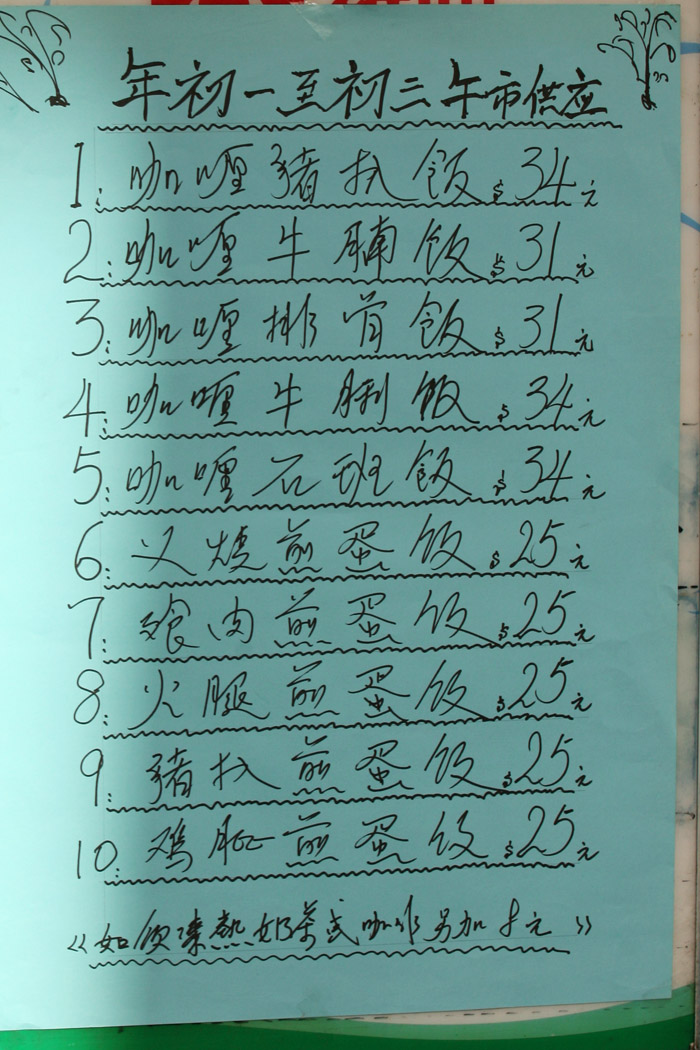 年初一至初三午市供应
1:咖喱豬扒飯$34元
2:咖喱牛腩飯$31元
3:咖喱排骨飯$31元
4:咖喱牛脷飯$34元
5:咖喱石班飯$34元
6:叉燒煎蛋饭$25元
7:餐肉煎蛋饭$25元
8:火腿煎蛋饭$25元
9:豬扒煎蛋饭$25元
10:鸡煎蛋饭$25元
《如熱奶茶或咖啡另加8元》